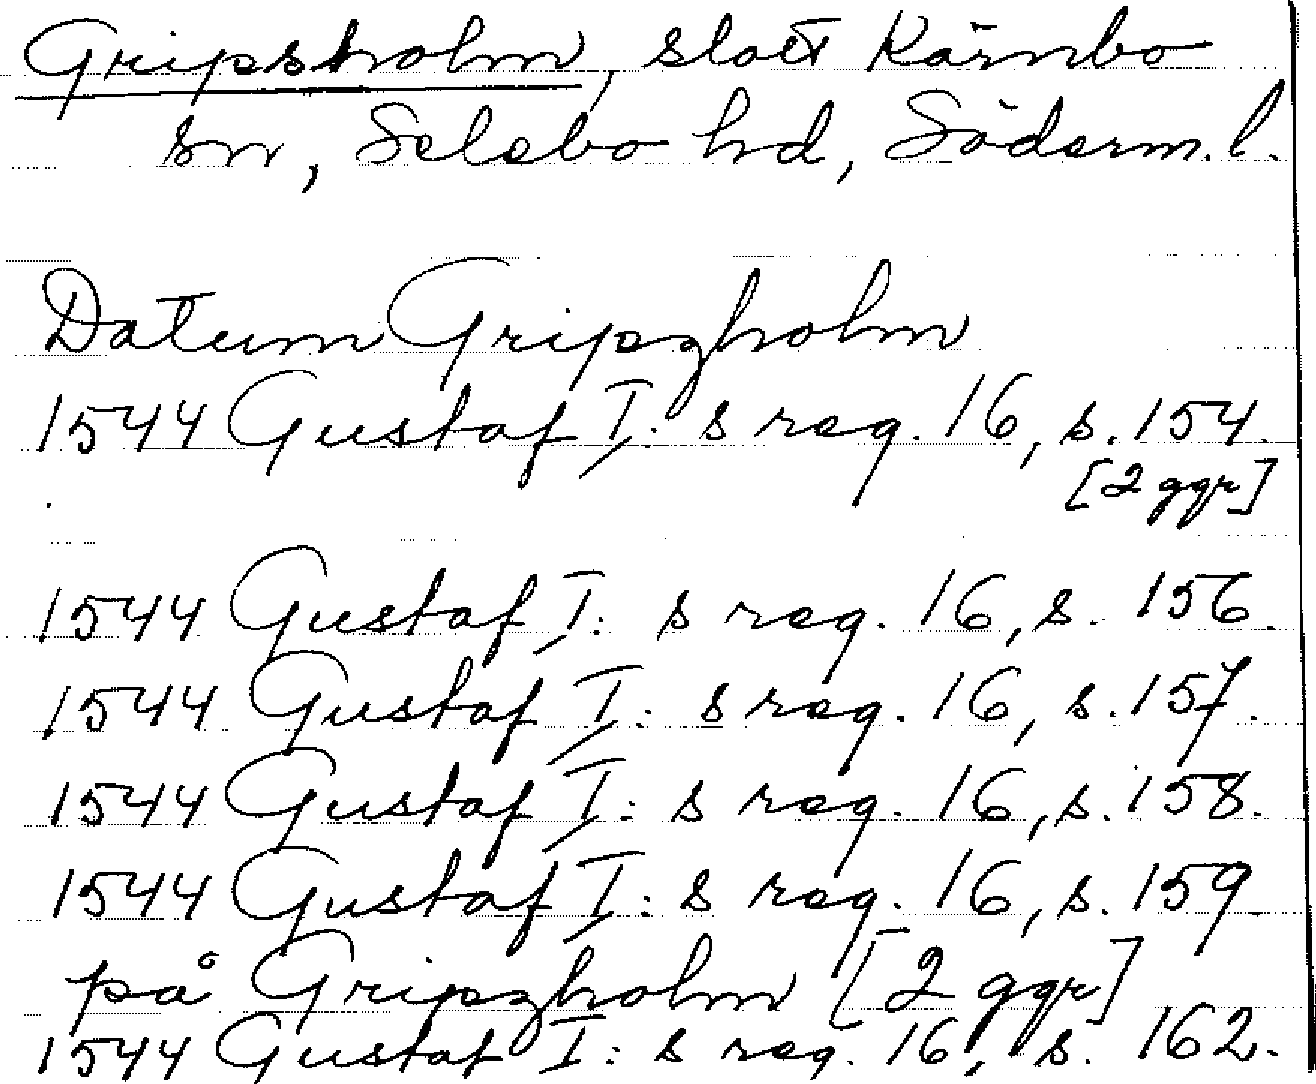 Gripsholm, slott Kärnbo
sn, Selebo hd, Söderm. l.
Datum Gripzholm
1544 Gustaf I: s reg. 16, s. 154.
[2 ggr]
1544 Gustaf I: s reg. 16, s. 156.
1544 Gustaf I: s reg. 16, s. 157.
1544 Gustaf I: s reg. 16, s. 158.
1544 Gustaf I: s reg. 16, s. 159
på Gripzholm [2 ggr]
1544 Gustaf I: s reg. 16, s. 162.